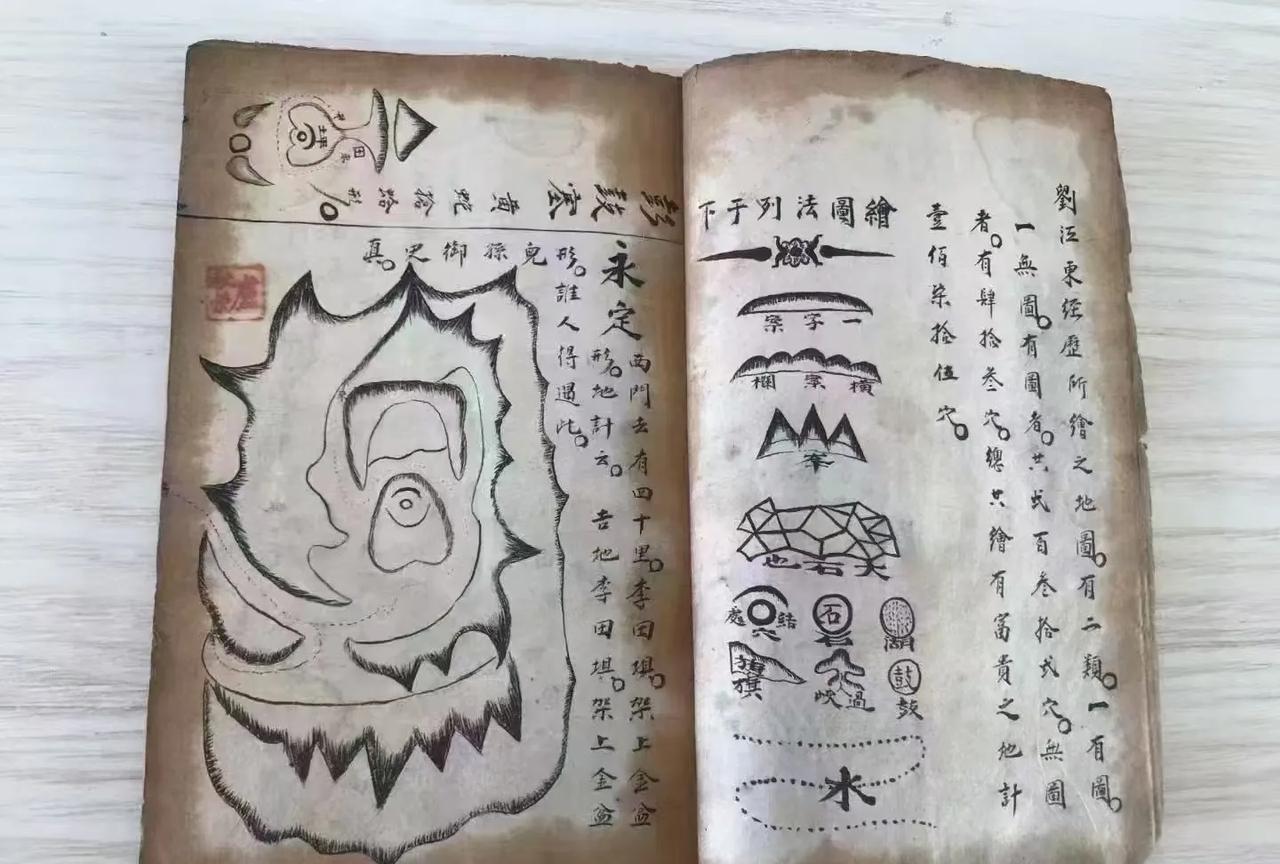 劉江東經歷所繪之地圖。有二類。一有圖。
一無圖。有圖者。共弍百叁拾弍穴。無圖
者。有肆拾叁穴。總共繪有富貴之地計
壹佰柒拾伍穴。
繪圖法列于下
一字案
橫案欄
大石也
湖
石
結穴處
鼓
鼓
過峽
旗
水
彭鼓寨黃蛇捡蛤形。
田
坪
永定
西門去有四十里。李田垻。架上金盆
形。地計云。吉地李田垻。架上金盆
形。誰人得遇此。
兒孫御史真。